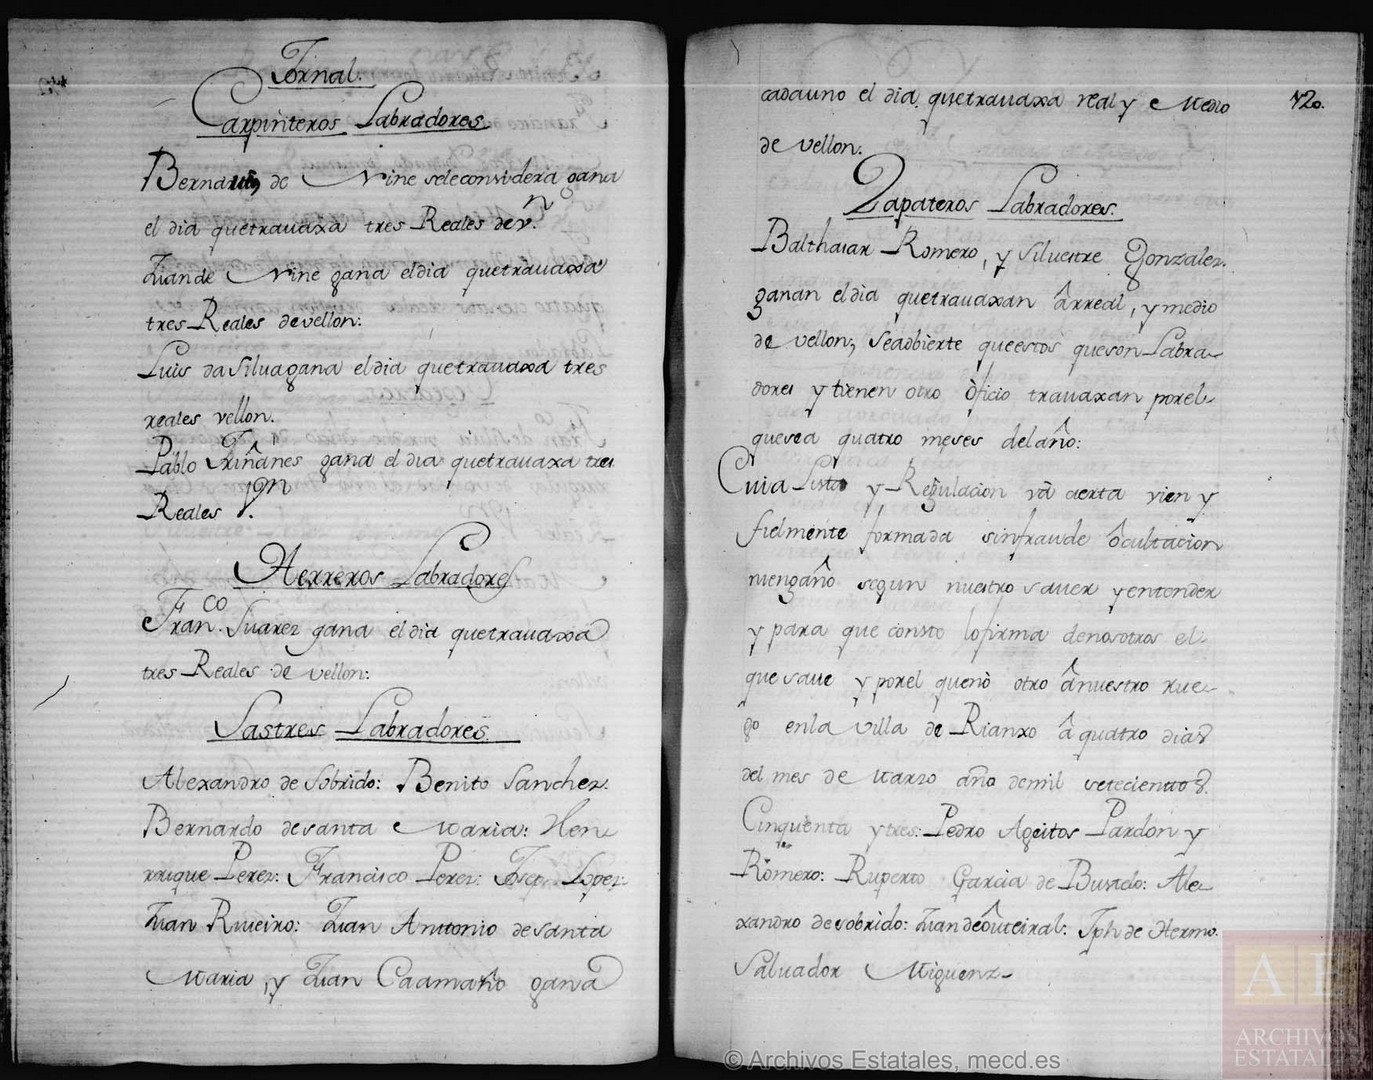 Jornal.
Carpinteros Labradores
Bernardo de Nine seleconsidera gana
el dia quetrauaxa tres Reales dev.n
Juande Nine gana eldia quetrauaxa
tres Reales devellon:
Luis da Silua gana eldia quetrauaxa tres
reales vellon.
Pablo Triñanes gana el dia quetrauaxa tres
Reales V.on
Herreros Labradores
Fran.co Suarez gana eldia quetrauaxa
tres Reales de vellon:
Sastres Labradores.
Alexandro de Sobrido: Benito Sanchez.
Bernardo desanta Maria: Hen
rrique Perez: Francisco Perez: Lopez:
Juan Riueiro: Juan Anttonio desanta
Maria, y Juan Caamaño gana
cadauno el dia quetrauaxa real y Medio
de vellon:
Zapateros Labradores.
Balthasar Romero, y Siluestre Gonzalez.
ganan eldia quetrauaxan âreal, y medio
de vellon; Seadbierte queestos queson Labra-
dores y tienen otro oficio trauaxan porel
quesea quatro meses delaño:
Cuia Lista y Regulacion va cierta vien y
fielmente formada sinfraude ôcultacion
niengaño segun nuestro sauer y entender
y para que conste lofirma denosotros el
que saue y porel quenò otro ânuestro rue-
go enla Villa de Rianxo â quatro dias
del mes de Marzo año demil setecienttos
Cinquenta ytres: Pedro Ageitos Pardon y
Romero: Ruperto Garcia de Bustdo: Ale-
xandro desobrido: Juandeôuteiral: Jph de Hermo
Saluador Miguenz-
420.
© Archivos Estatales, mecd.es
AE
ARCHIVOS
ESTATALES